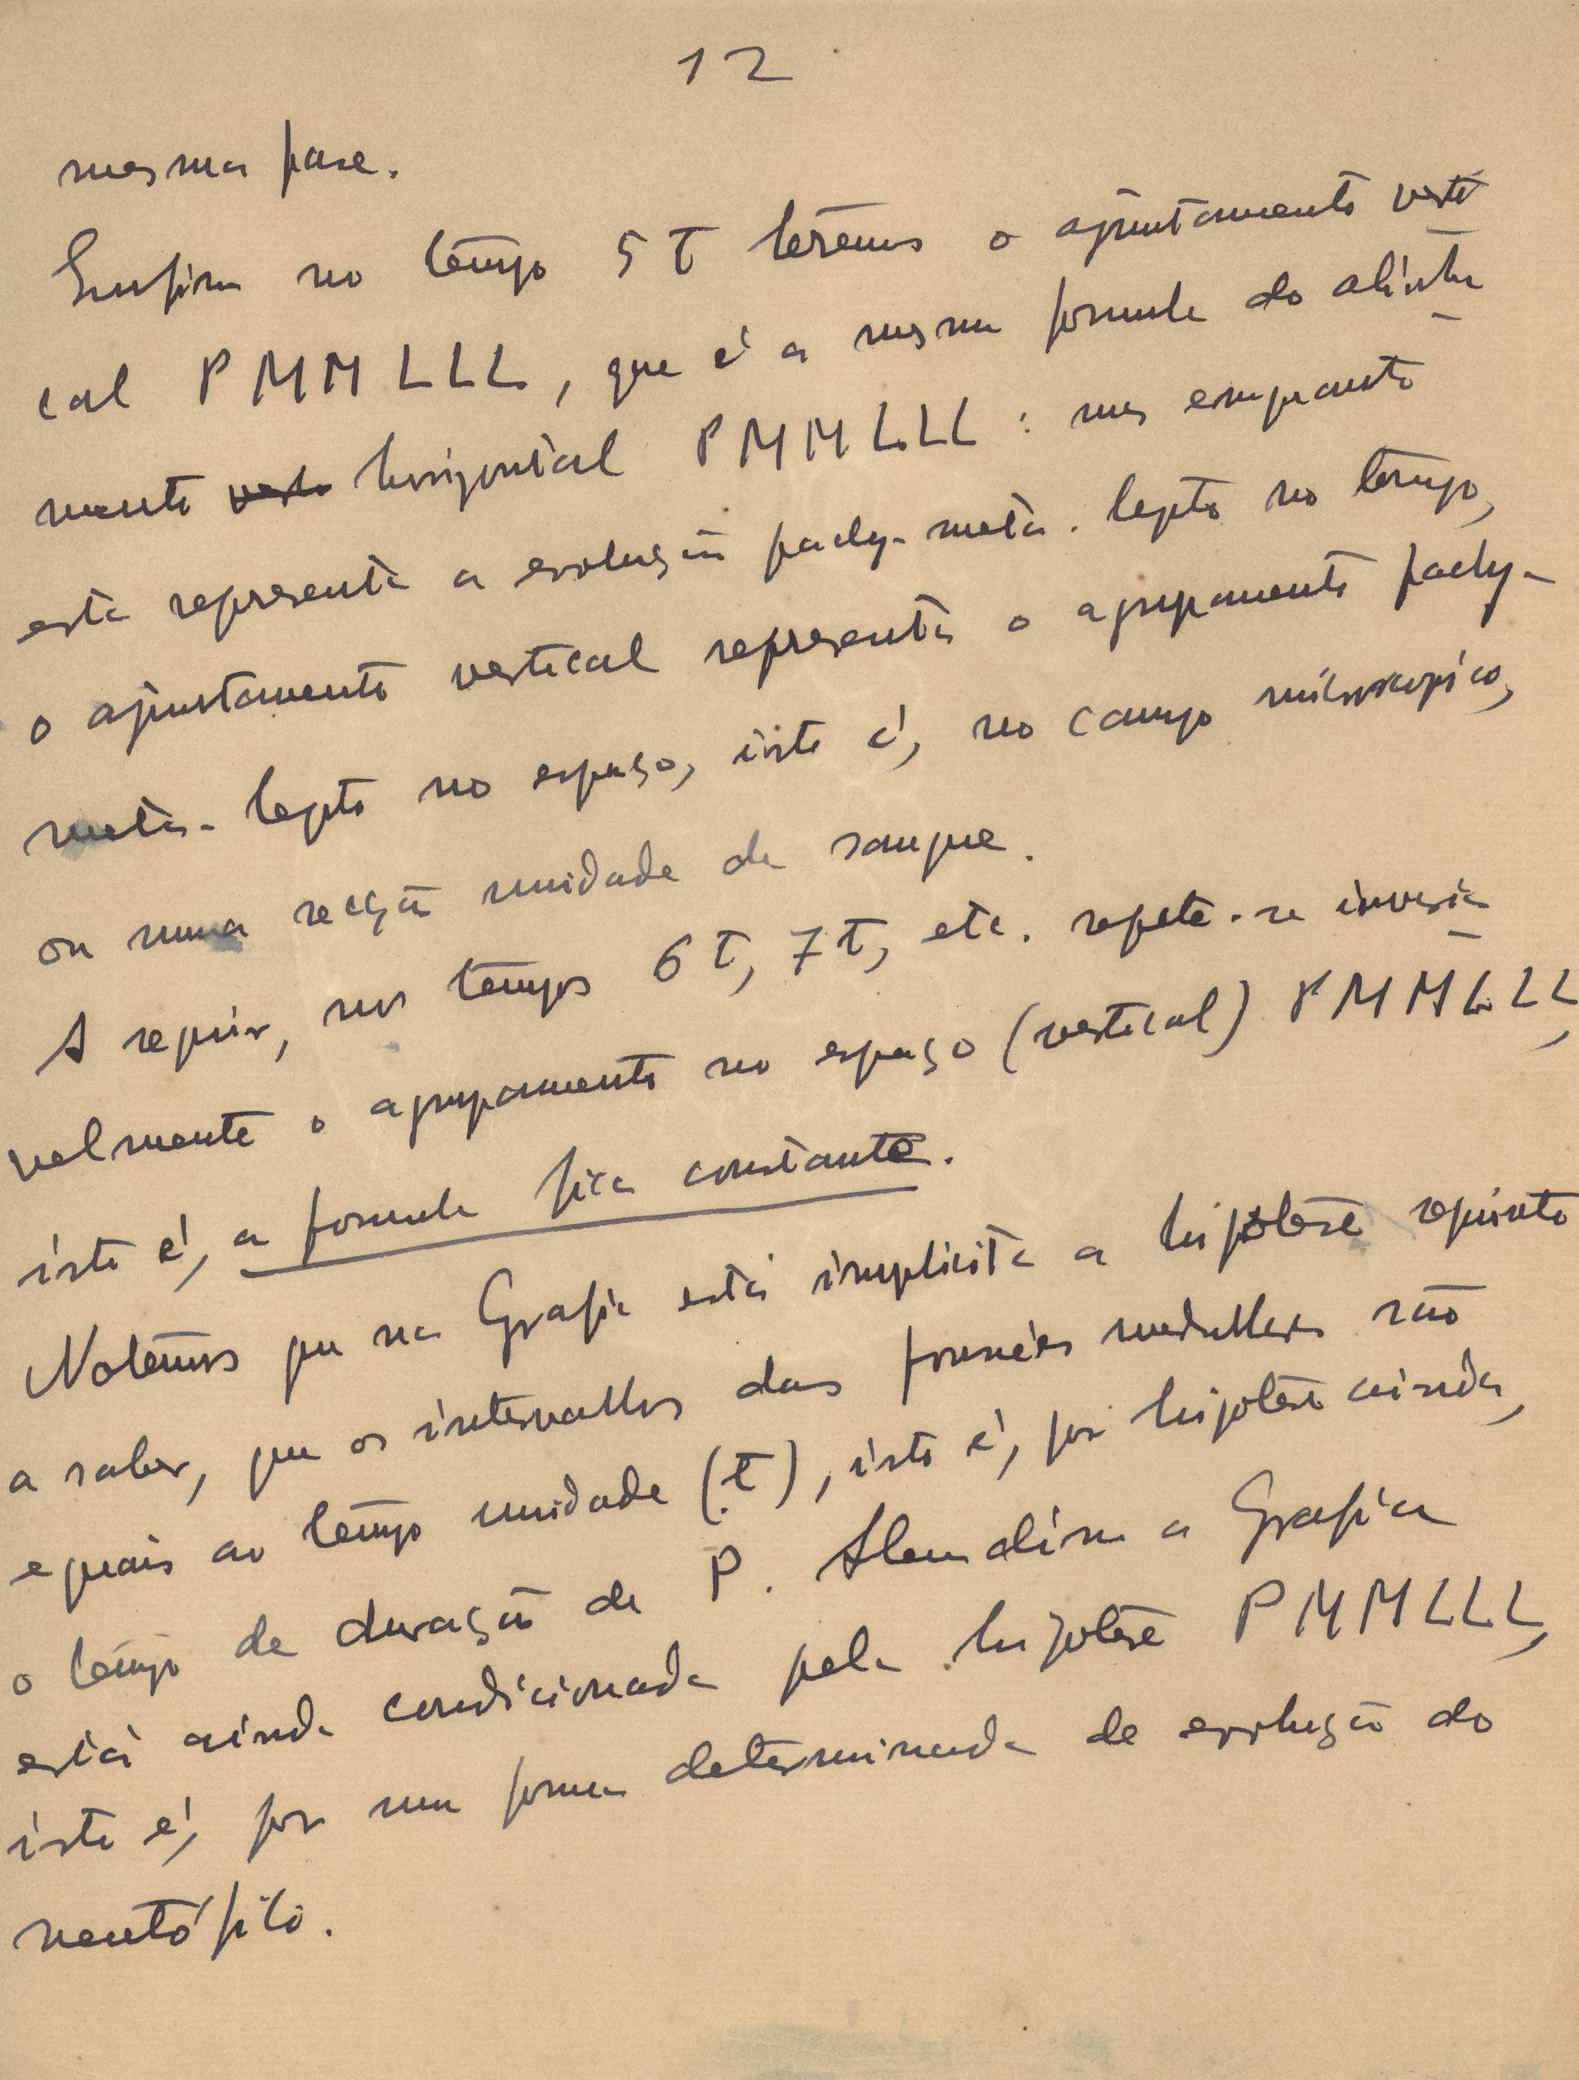 12
mesma fase.
Emfim no tempo 5 T teremos o ajuntamento verti
cal PMMLLL, que é a mesma formula do alinha
mento verti horizontal PMMLLL: mas emquanto
esta representa a evolução pachy-meta-lepto no tempo,
o ajuntamento vertical representa o agrupamento pachy-
meta-lepto no espaço, isto é, no campo microscopico,
ou numa secção unidade de sangue.
A seguir, nos tempos 6 T, 7 T, etc. repete-se invaria
velmente o agrupamento no espaço (vertical) PMMLLL,
isto é, a formula fica constante.
Notemos que na Grafia está implicita a hipotese seguinte
a saber, que os intervallos das fornées medullares são
eguais ao tempo unidade (T), isto é, por hipotese ainda,
o tempo de duração de P. Alem disso a Grafia
está ainda condicionada pela hipotese PMMLLL,
isto é, por uma forma determinada de evolução do
neutrófilo.